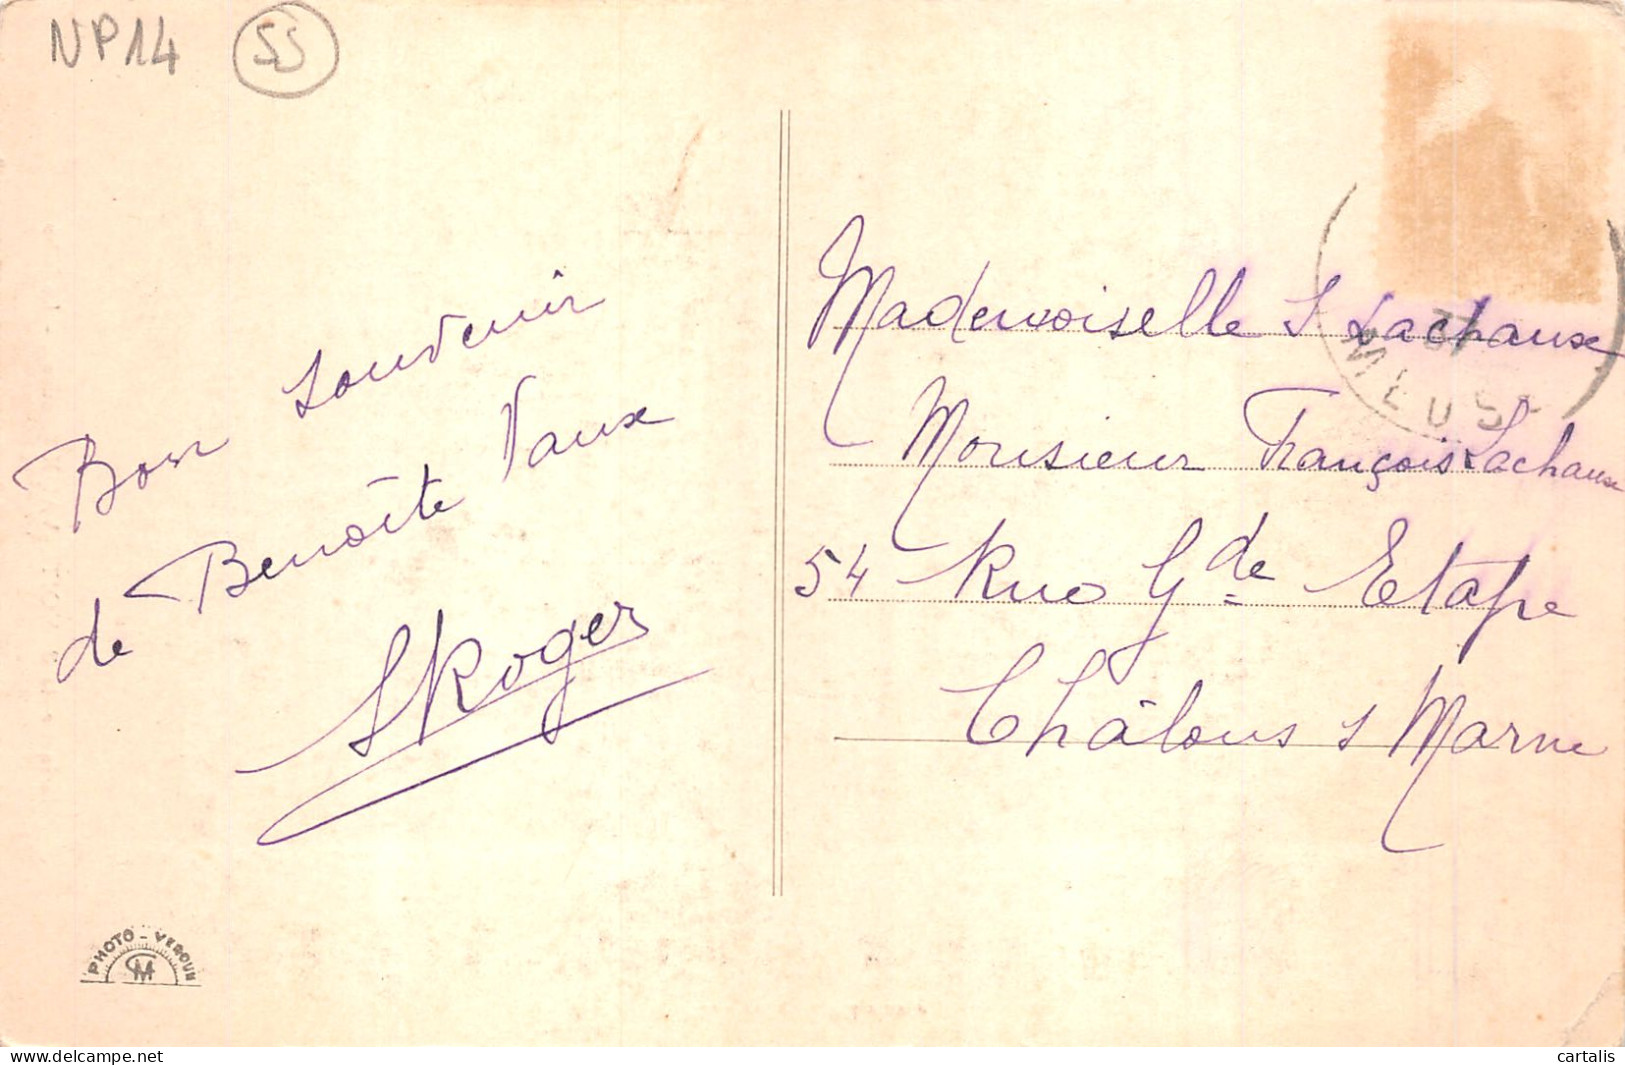 NP14 55
Bon souvenir
de Benoîte Vaux
SRoger
Mademoiselle S Lachaux
Monsieur François Lachaux
54 Rue Gde Etape
Châlons s Marne
37
MEUSE
PHOTO - VERDUN
CM
www.delcampe.net
cartalis